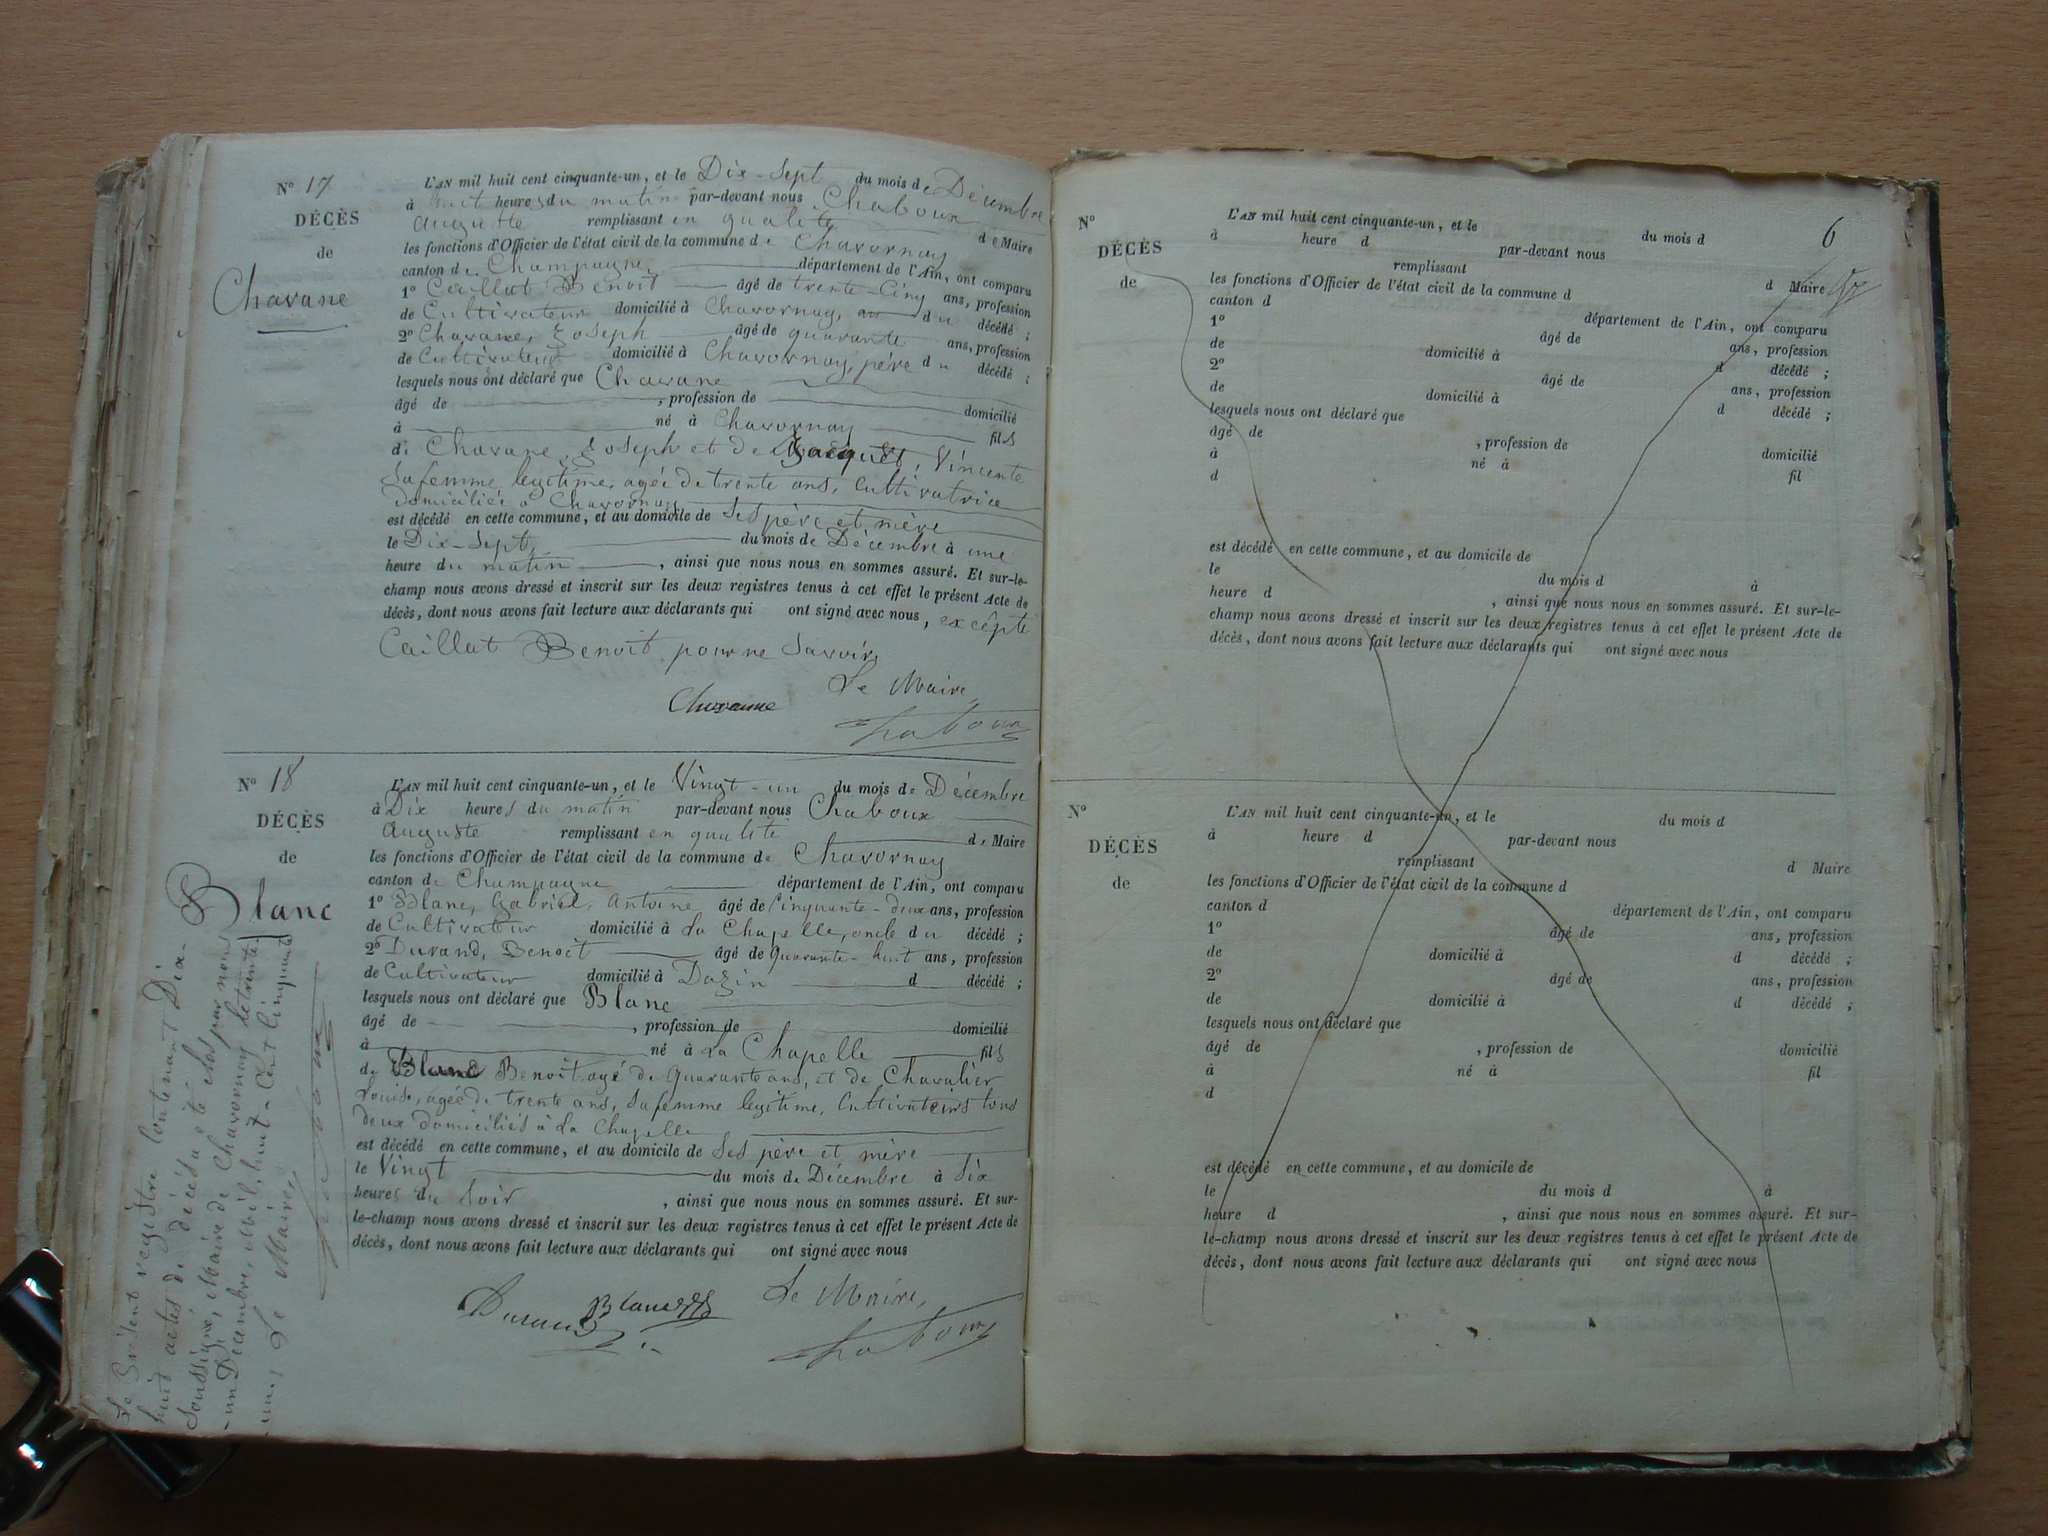 N° 17
DÉCÈS
de
Chavane
L'AN mil huit cent cinquante-un, et le Dix-Sept du mois de Décembre
à huit heures du matin par-devant nous Chaboux
auguste remplissant en qualité de Maire
les fonctions d'Officier de l'état civil de la commune de Chavornay
canton de Champagne département de l'Ain, ont comparu
1° Caillat Benoit âgé de trente-Cinq ans, profession
de Cultivateur domicilié à Chavornay, du décédé ;
2° Chavane, Joseph âgé de quarante ans, profession
de Cultivateur domicilié à Chavornay, père du décédé ;
lesquels nous ont déclaré que Chavane
âgé de , profession de domicilié
à né à Chavornay fils
de Chavane, Joseph et de Jacquet, Vincente
Sa femme legitime, agée de trente ans, Cultivatrice
domiciliée à Chavornay
est décédé en cette commune, et au domicile de Ses père et mère
le Dix-Sept du mois de Décembre à une
heure du matin , ainsi que nous nous en sommes assuré. Et sur-le-
champ nous avons dressé et inscrit sur les deux registres tenus à cet effet le présent Acte de
décès, dont nous avons fait lecture aux déclarants qui ont signé avec nous, excêpté
Caillat Benoit, pour ne Savoir,
Le Maire,
Chavanne
Chaboux
N° 18
DÉCÈS
de
Blanc
L'AN mil huit cent cinquante-un, et le Vingt-un du mois de Décembre
à Dix heures du matin par-devant nous Chaboux
auguste remplissant en qualité de Maire
les fonctions d'Officier de l'état civil de la commune de Chavornay
canton de Champagne département de l'Ain, ont comparu
1° Blanc, Gabriel, Antoine âgé de Cinquante-deux ans, profession
de Cultivateur domicilié à La Chapelle, oncle du décédé ;
2° Durand, Benoit âgé de Quarante-huit ans, profession
de Cultivateur domicilié à Dazin d décédé ;
lesquels nous ont déclaré que Blanc
âgé de , profession de domicilié
à né à La Chapelle fils
de Blanc Benoit agé de Quarante ans, et de Chavalier
Louise, agée de trente ans, Sa femme legitime, Cultivateurs tous
deux domiciliés à La Chapelle
est décédé en cette commune, et au domicile de Ses père et mère
le Vingt du mois de Décembre à Six
heures du Soir , ainsi que nous nous en sommes assuré. Et sur-
le-champ nous avons dressé et inscrit sur les deux registres tenus à cet effet le présent Acte de
décès, dont nous avons fait lecture aux déclarants qui ont signé avec nous
Le Maire,
Durand Blanc
Chaboux
Le Présent registre Contenant Dix-
huit actes de décès a été Clos par nous
Soussigné, Maire de Chavornay le trente-
-un Décembre, Mil huit-Cent Cinquante
-un,
Le Maire,
Chaboux
6
N°
DÉCÈS
de
L'AN mil huit cent cinquante-un, et le du mois d
à heure d par-devant nous
remplissant d Maire
les fonctions d'Officier de l'état civil de la commune d
canton d département de l'Ain, ont comparu
1° âgé de ans, profession
de domicilié à d décédé ;
2° âgé de ans, profession
de domicilié à d décédé ;
lesquels nous ont déclaré que
âgé de , profession de domicilié
à né à fil
d
est décédé en cette commune, et au domicile de
le du mois d à
heure d , ainsi que nous nous en sommes assuré. Et sur-le-
champ nous avons dressé et inscrit sur les deux registres tenus à cet effet le présent Acte de
décès, dont nous avons fait lecture aux déclarants qui ont signé avec nous
N°
DÉCÈS
de
L'AN mil huit cent cinquante-un, et le du mois d
à heure d par-devant nous
remplissant d Maire
les fonctions d'Officier de l'état civil de la commune d
canton d département de l'Ain, ont comparu
1° âgé de ans, profession
de domicilié à d décédé ;
2° âgé de ans, profession
de domicilié à d décédé ;
lesquels nous ont déclaré que
âgé de , profession de domicilié
à né à fil
d
est décédé en cette commune, et au domicile de
le du mois d à
heure d , ainsi que nous nous en sommes assuré. Et sur-
le-champ nous avons dressé et inscrit sur les deux registres tenus à cet effet le présent Acte de
décès, dont nous avons fait lecture aux déclarants qui ont signé avec nous